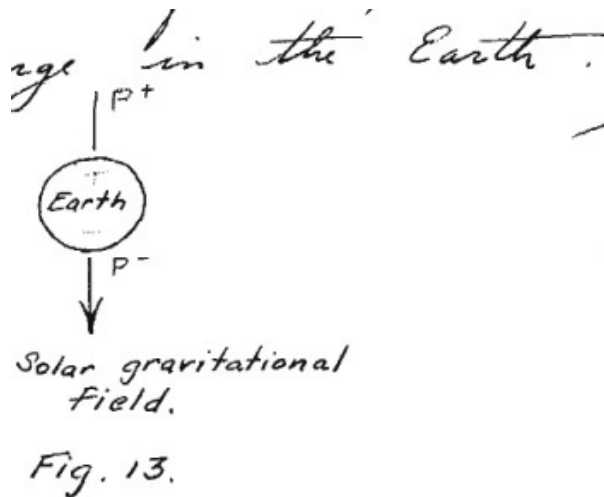 rge in the Earth.
P+
Earth
P-
Solar gravitational
field.
Fig. 13.